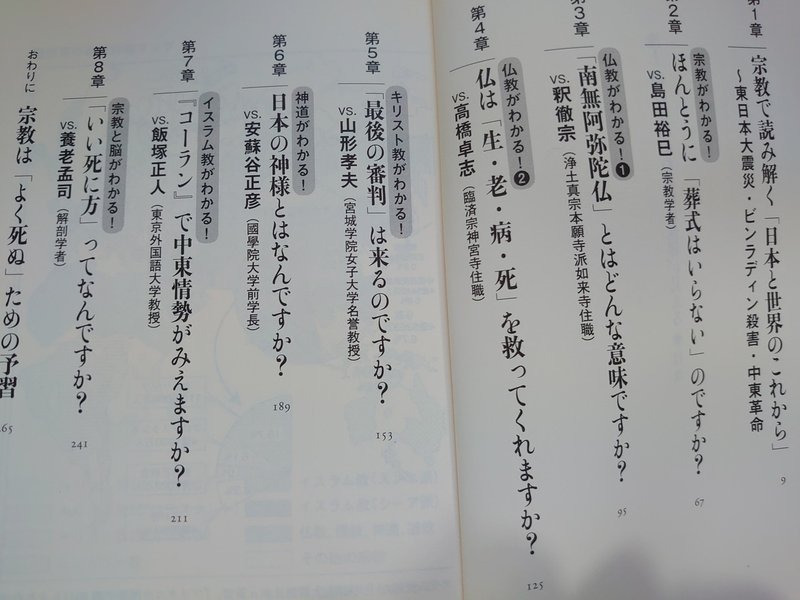 第1章
宗教で読み解く「日本と世界のこれから」
〜東日本大震災・ビンラディン殺害・中東革命
9
第2章
宗教がわかる!
ほんとうに「葬式はいらない」のですか?
vs.島田裕巳(宗教学者)
67
第3章
仏教がわかる!❶
「南無阿弥陀仏」とはどんな意味ですか?
vs.釈徹宗(浄土真宗本願寺派如来寺住職)
95
第4章
仏教がわかる!❷
仏は「生・老・病・死」を救ってくれますか?
vs.高橋卓志(臨済宗神宮寺住職)
125
第5章
キリスト教がわかる!
「最後の審判」は来るのですか?
vs.山形孝夫(宮城学院女子大学名誉教授)
153
第6章
神道がわかる!
日本の神様とはなんですか?
vs.安蘇谷正彦(國學院大学前学長)
189
第7章
イスラム教がわかる!
『コーラン』で中東情勢がみえますか?
vs.飯塚正人(東京外国語大学教授)
211
第8章
宗教と脳がわかる!
「いい死に方」ってなんですか?
vs.養老孟司(解剖学者)
241
おわりに 宗教は「よく死ぬ」ための予習
265